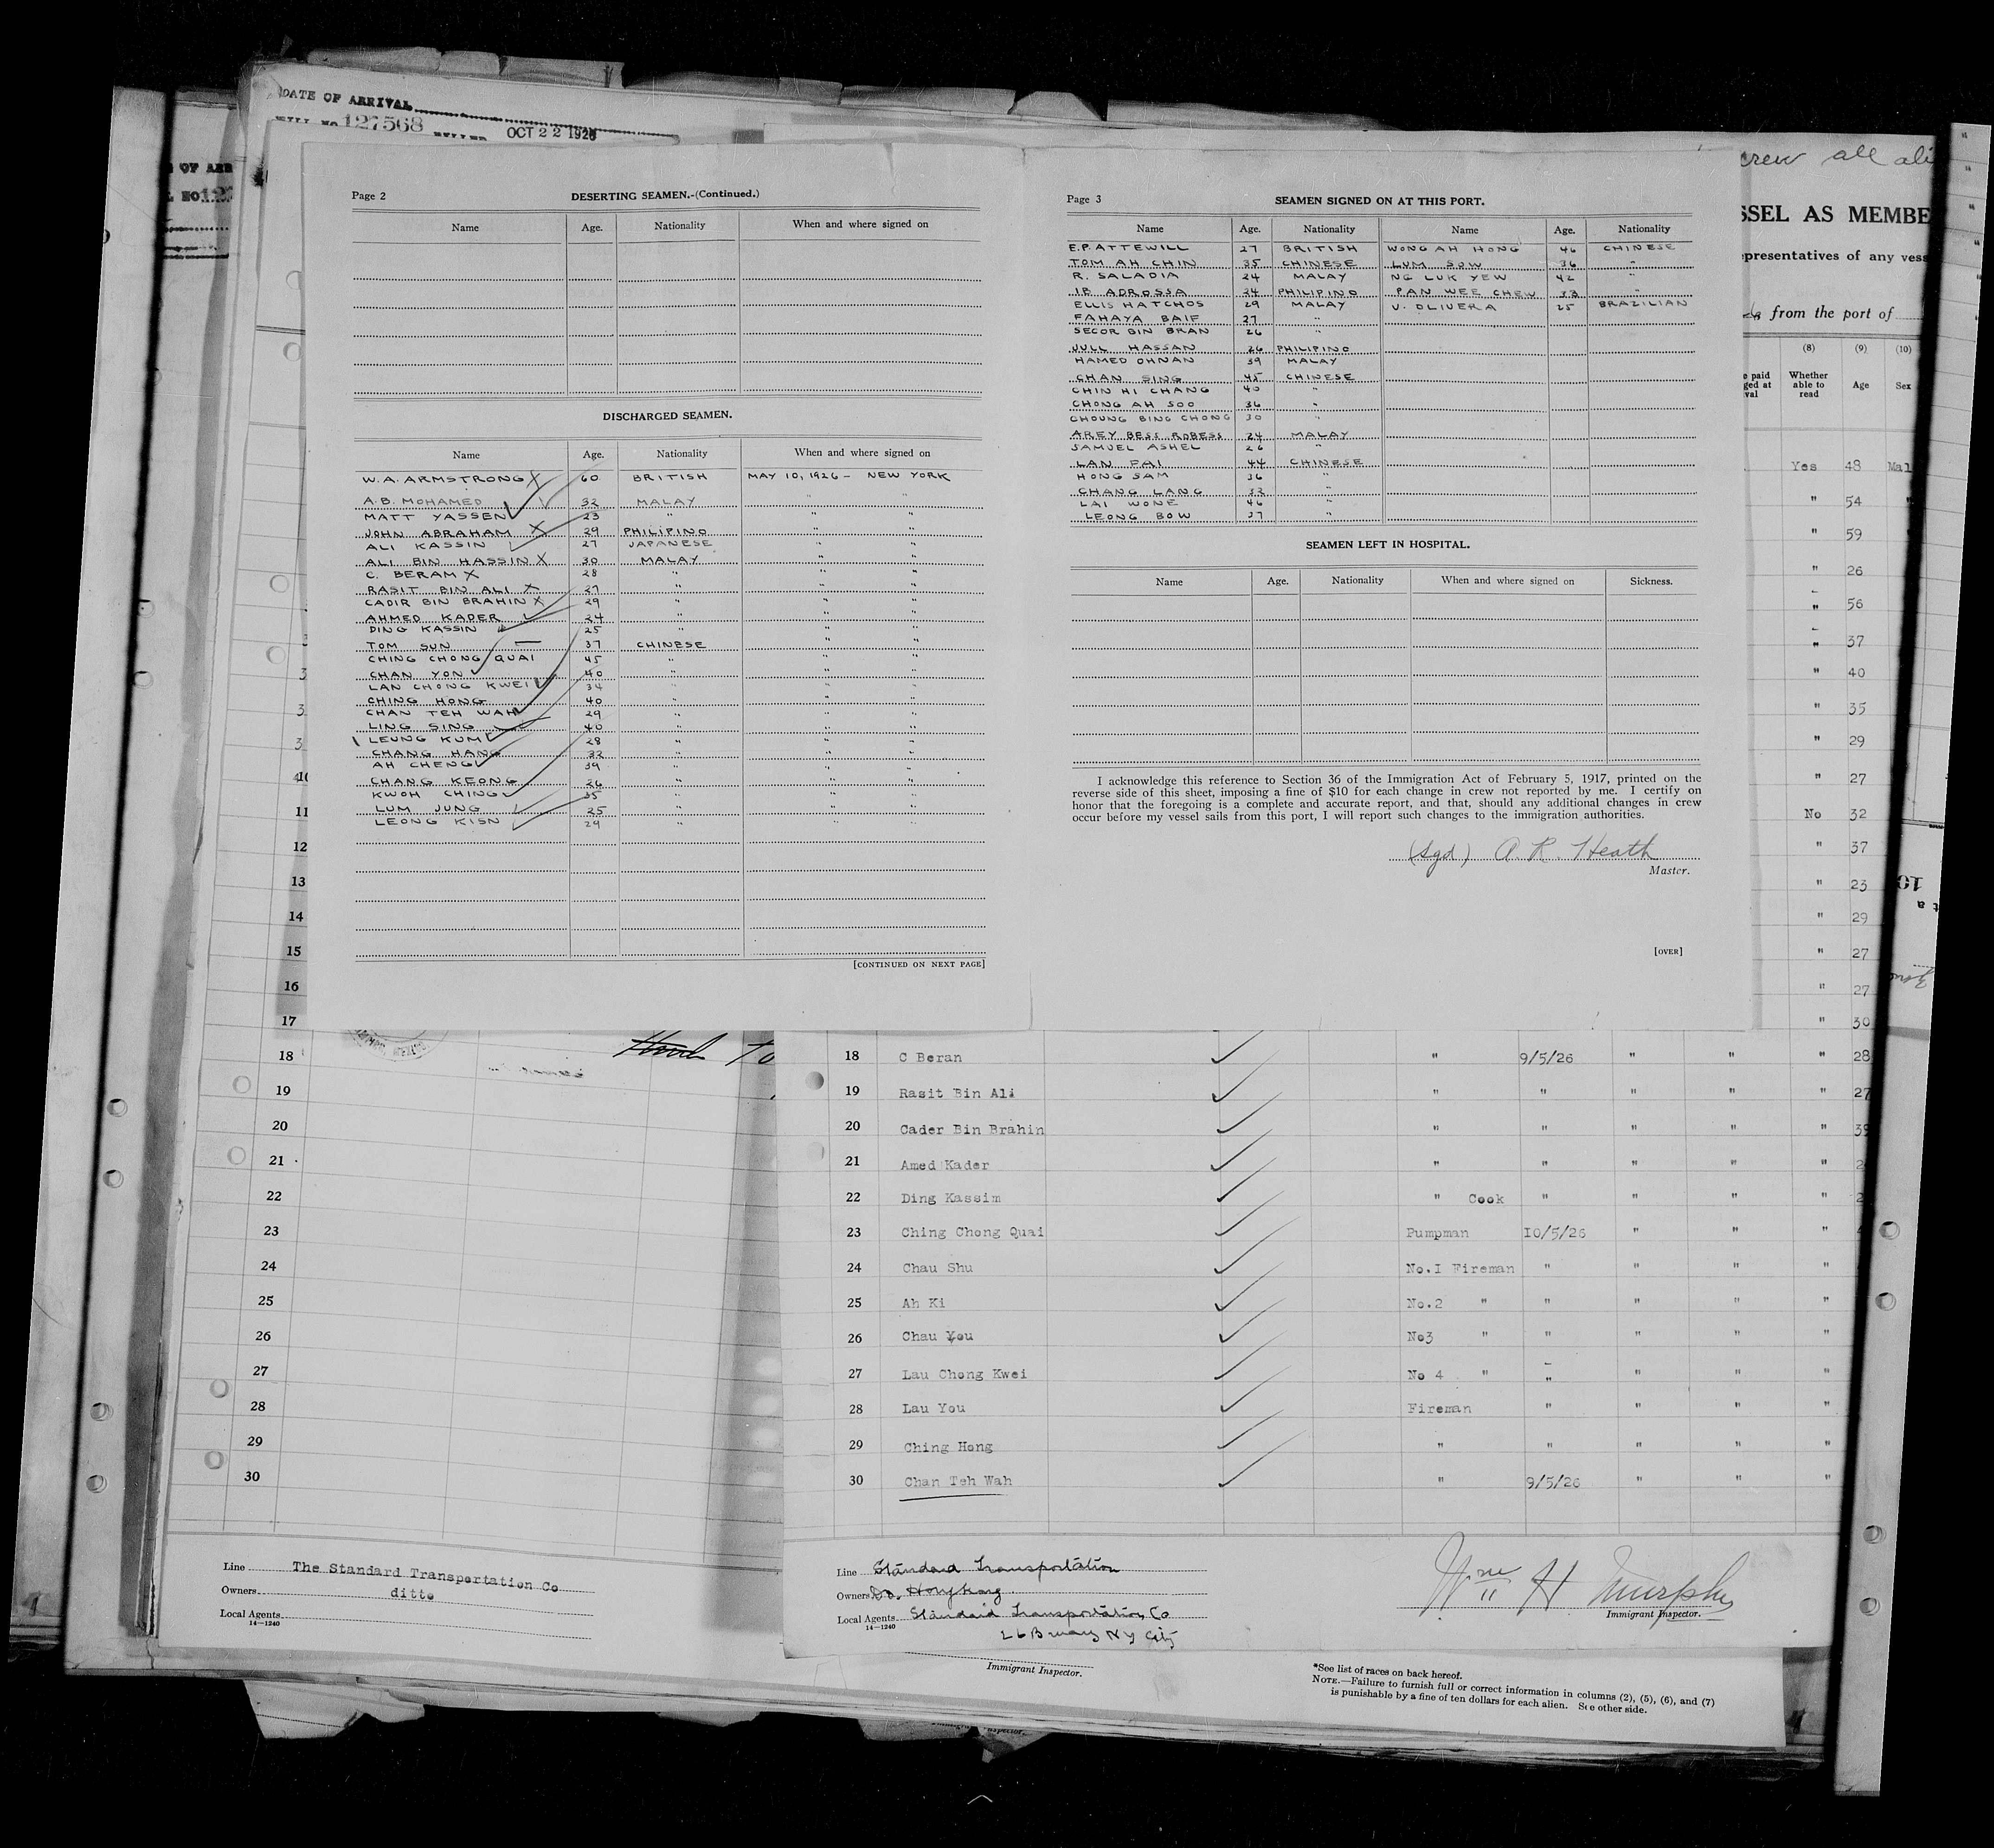 DATE OF ARRIVAL
127568 OCT 22 1926
OF ARR
NO. 127
crew all ali
SSEL AS MEMBE
epresentatives of any vess
from the port of
(8) (9) (10)
e paid
ged at
val
Whether
able to
read
Age
Sex
Yes 48 Mal
" 54 "
" 59
" 26
" 56
" 37
" 40
" 35
" 29
" 27
No 32
" 37
" 23
" 29
" 27
" 27
" 30
Page 2 DESERTING SEAMEN.-(Continued.)
Name Age. Nationality When and where signed on
DISCHARGED SEAMEN.
Name Age. Nationality When and where signed on
W.A. ARMSTRONG X 60 BRITISH MAY 10, 1926 - NEW YORK
A.B. MOHAMED 32 MALAY " "
MATT YASSEN 23 " " "
JOHN ABRAHAM X 29 PHILIPINO " "
ALI KASSIN 27 JAPANESE " "
ALI BIN HASSIN X 30 MALAY " "
C. BERAM X 28 " " "
RASIT BIN ALI X 27 " " "
CADIR BIN BRAHIN X 29 " " "
AHMED KADER 24 " " "
DING KASSIN 25 " " "
TOM SUN — 37 CHINESE " "
CHING CHONG QUAI 45 " " "
CHAN YON 40 " " "
LAN CHONG KWEI 34 " " "
CHING HONG 40 " " "
CHAN TEH WAH 29 " " "
LING SING 40 " " "
LEUNG KUM 28 " " "
CHANG HANG 32 " " "
AH CHENG 39 " " "
CHANG KEONG 26 " " "
KWOH CHING 35 " " "
LUM JUNG 25 " " "
LEONG KISN 29 " " "
[CONTINUED ON NEXT PAGE]
Page 3 SEAMEN SIGNED ON AT THIS PORT.
Name Age. Nationality Name Age. Nationality
E.P. ATTEWILL 27 BRITISH WONG AH HONG 46 CHINESE
TOM AH CHIN 35 CHINESE LUM SOW 36 "
R. SALADIA 24 MALAY NG LUK YEW 42 "
IB ADROSSA 34 PHILIPINO PAN WEE CHEW 33 "
ELLIS HATCHOS 29 MALAY V. OLIVERA 25 BRAZILIAN
FAHAYA BAIF 27 "
SECOR BIN BRAN 26 "
JULL HASSAN 26 PHILIPINO
HAMED OHNAN 39 MALAY
CHAN SING 45 CHINESE
CHIN HI CHANG 40 "
CHONG AH SOO 36 "
CHOUNG BING CHONG 30 "
AREY BESS ROBESS 24 MALAY
SAMUEL ASHEL 26 "
LAN PAI 44 CHINESE
HONG SAM 36 "
CHANG LANG 32 "
LAI WONE 46 "
LEONG BOW 37 "
SEAMEN LEFT IN HOSPITAL.
Name Age. Nationality When and where signed on Sickness.
I acknowledge this reference to Section 36 of the Immigration Act of February 5, 1917, printed on the
reverse side of this sheet, imposing a fine of $10 for each change in crew not reported by me. I certify on
honor that the foregoing is a complete and accurate report, and that, should any additional changes in crew
occur before my vessel sails from this port, I will report such changes to the immigration authorities.
(Sgd) A. R. Heath
Master.
[OVER]
11
12
13
14
15
16
17
18
19
20
21
22
23
24
25
26
27
28
29
30
18 C Beran " 9/5/26 " " " 28
19 Rasit Bin Ali " " " " " 27
20 Cader Bin Brahin " " " " " 39
21 Amed Kader " " " " " 2
22 Ding Kassim " Cook " " " " 2
23 Ching Chong Quai Pumpman 10/5/26 " " "
24 Chau Shu No.I Fireman " " " "
25 Ah Ki No.2 " " " " "
26 Chau You No3 " " " " "
27 Lau Chong Kwei No 4 " " " " "
28 Lau You Fireman " " " "
29 Ching Hong " " " " "
30 Chan Teh Wah " 9/5/26 " " "
Line The Standard Transportation Co
Owners ditto
Local Agents
14—1240
Line Standard Transportation
Owners Do. Hongkong
Local Agents Standard Transportation Co
14—1240
26 Bway NY City
Wm H Murphy
Immigrant Inspector.
Immigrant Inspector.
*See list of races on back hereof.
NOTE.—Failure to furnish full or correct information in columns (2), (5), (6), and (7)
is punishable by a fine of ten dollars for each alien. See other side.